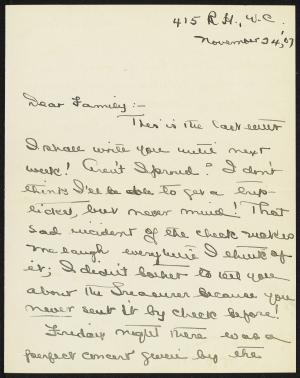 415 R.H., W.C.
November 24, '07
Dear Family:-
This is the last letter
I shall write you until next
week! Aren't I proud? I don't
think I'll be able to get a
ticket, but never mind! That
sad incident of the check makes
me laugh everytime I think of
it; I didn't bother to tell you
about the Treasurer because you
never sent it by check before!
Friday night there was a
perfect concert given by the